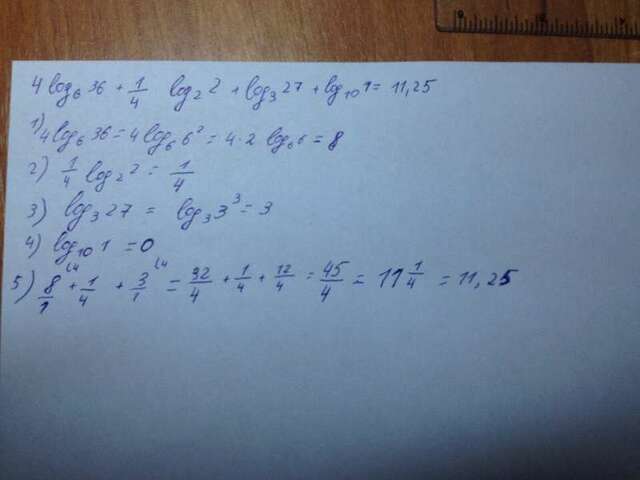 4 log₆ 36 + 1/4 log₂ 2 + log₃ 27 + log₁₀ 1 = 11,25
1) 4 log₆ 36 = 4 log₆ 6² = 4·2 log₆ 6 = 8
2) 1/4 log₂ 2 = 1/4
3) log₃ 27 = log₃ 3³ = 3
4) log₁₀ 1 = 0
5) 8/1 (4 + 1/4 + 3/1 (4 = 32/4 + 1/4 + 12/4 = 45/4 = 11 1/4 = 11,25